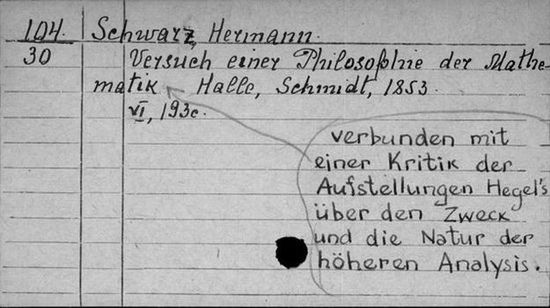 104. Schwarz, Hermann.
30 Versuch einer Philosophie der Mathe-
matik Halle, Schmidt, 1853.
VI, 193c.
verbunden mit
einer Kritik der
Aufstellungen Hegel's
über den Zweck
und die Natur der
höheren Analysis.